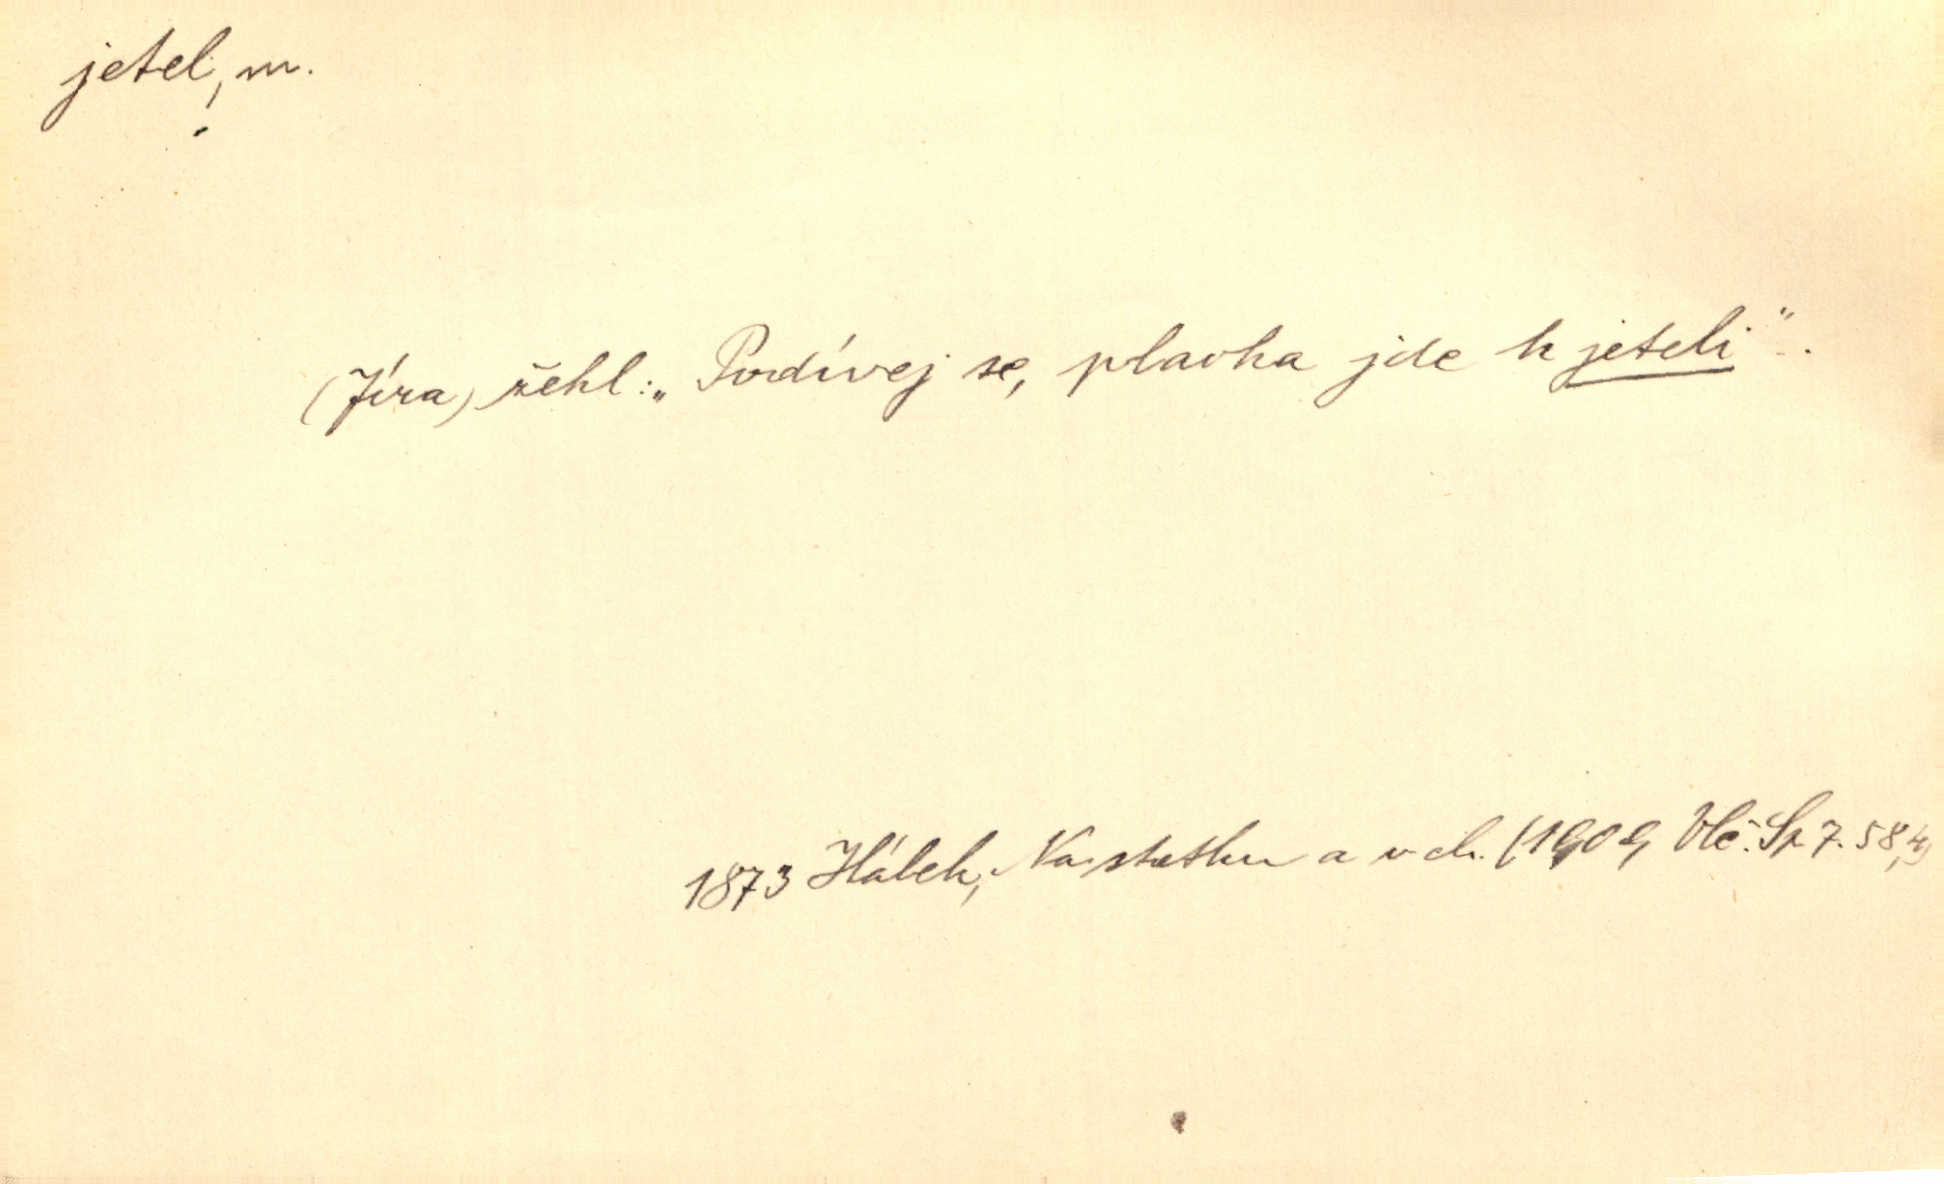 jetel, m.
(Jíra) řekl: „Podívej se, plavka jde k jeteli".
1873 Hálek, Na statku a v ch. (1909, Vlč. Sp. 7. 58,4)